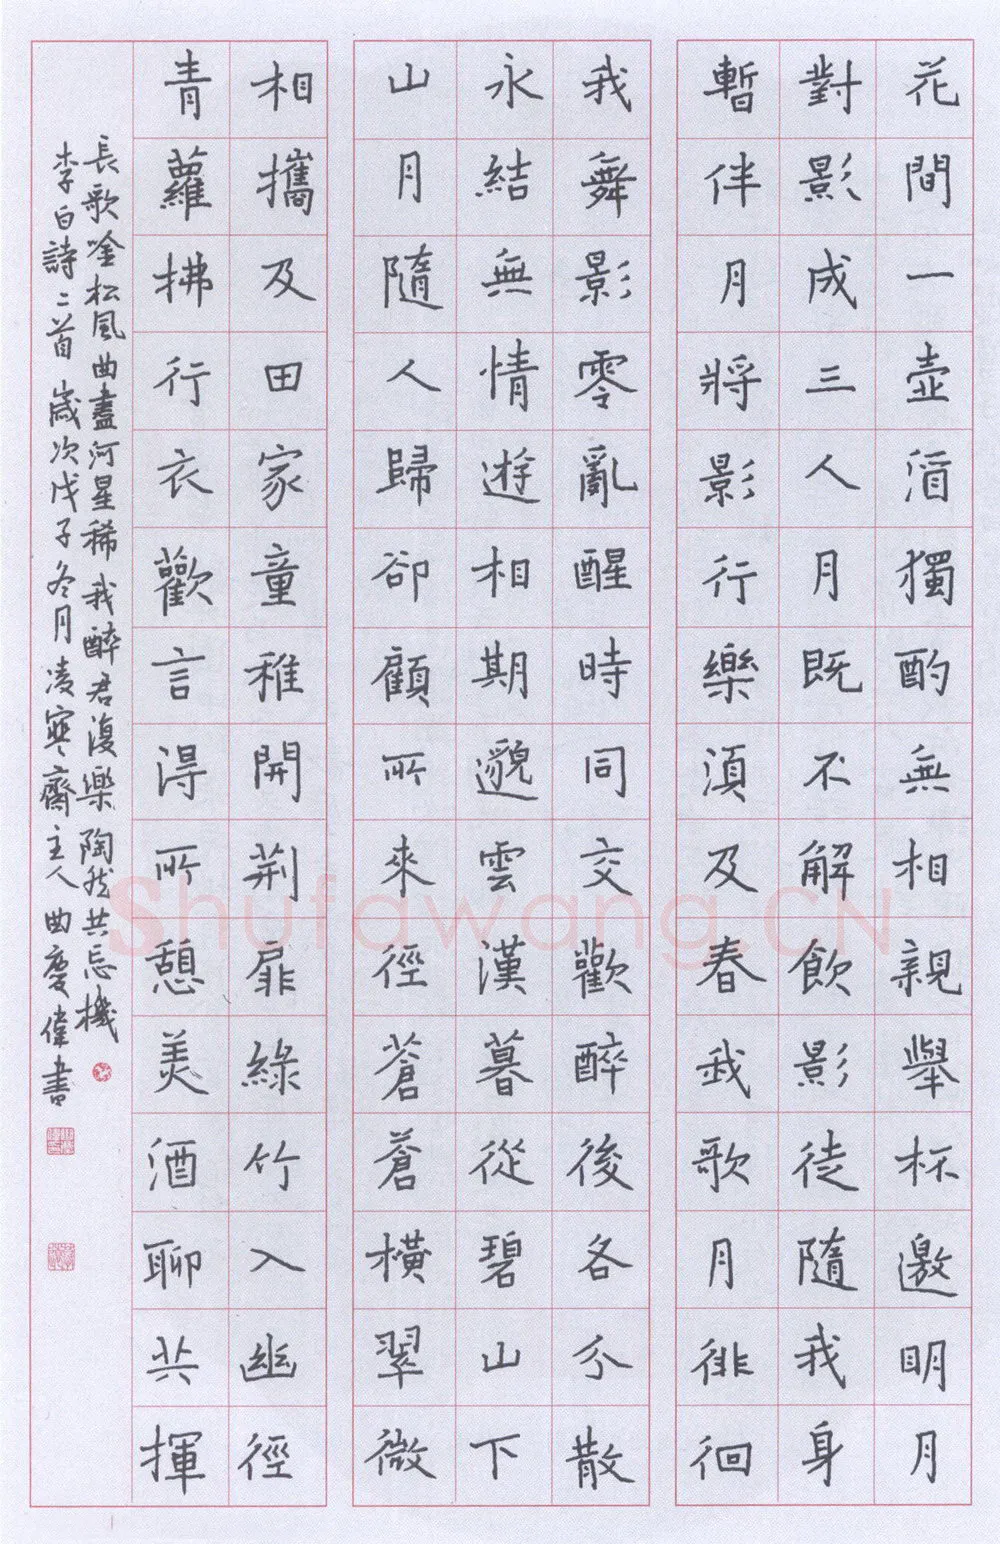 花間一壺酒獨酌無相親舉杯邀明月
對影成三人月既不解飲影徒隨我身
暫伴月將影行樂須及春我歌月徘徊
我舞影零亂醒時同交歡醉後各分散
永結無情遊相期邈雲漢暮從碧山下
山月隨人歸卻顧所來徑蒼蒼橫翠微
相攜及田家童稚開荊扉綠竹入幽徑
青蘿拂行衣歡言得所憩美酒聊共揮
長歌唫松風曲盡河星稀我醉君復樂陶然共忘機
李白詩二首 歲次戊子冬月凌寒齋主人曲慶偉書
Shufawang.CN